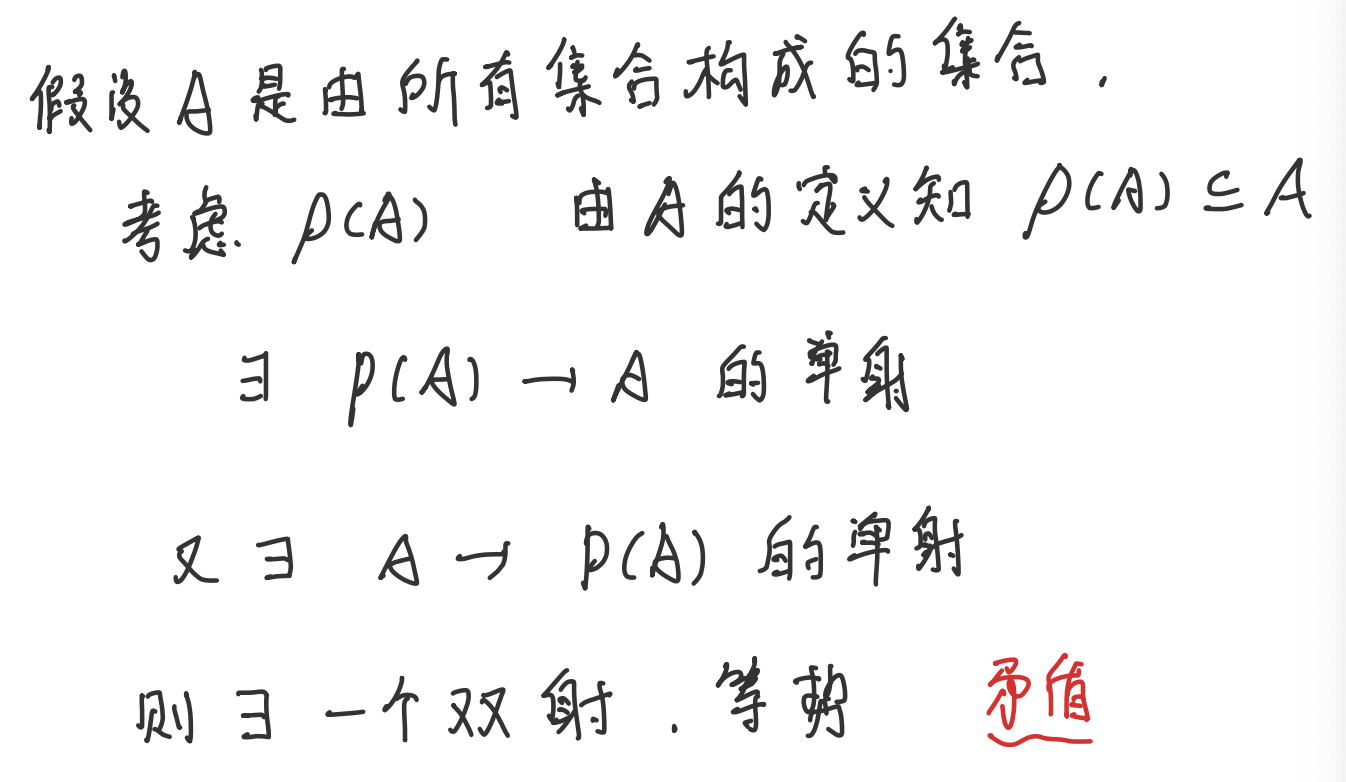 假设 A 是由所有集合构成的集合.
考虑. P(A) 由 A 的定义知 P(A) ⊆ A
∃ P(A) → A 的单射
又 ∃ A → P(A) 的单射
则 ∃ 一个双射. 等势 矛盾